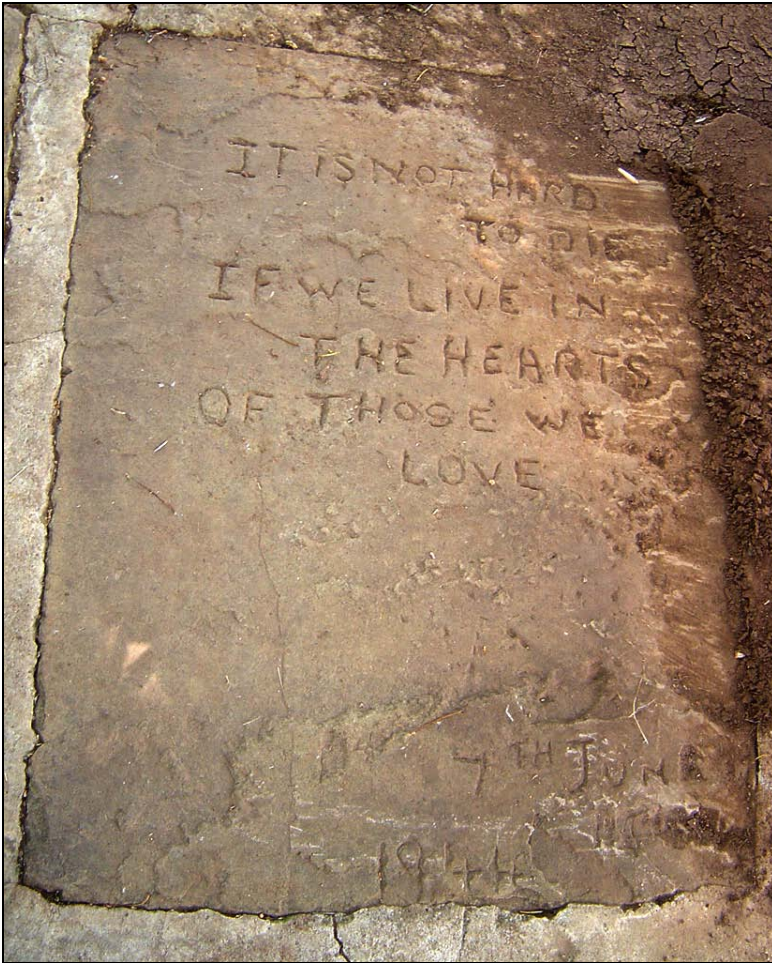 IT IS NOT HARD
TO DIE
IF WE LIVE IN
THE HEARTS
OF THOSE WE
LOVE
7TH JUNE
1944